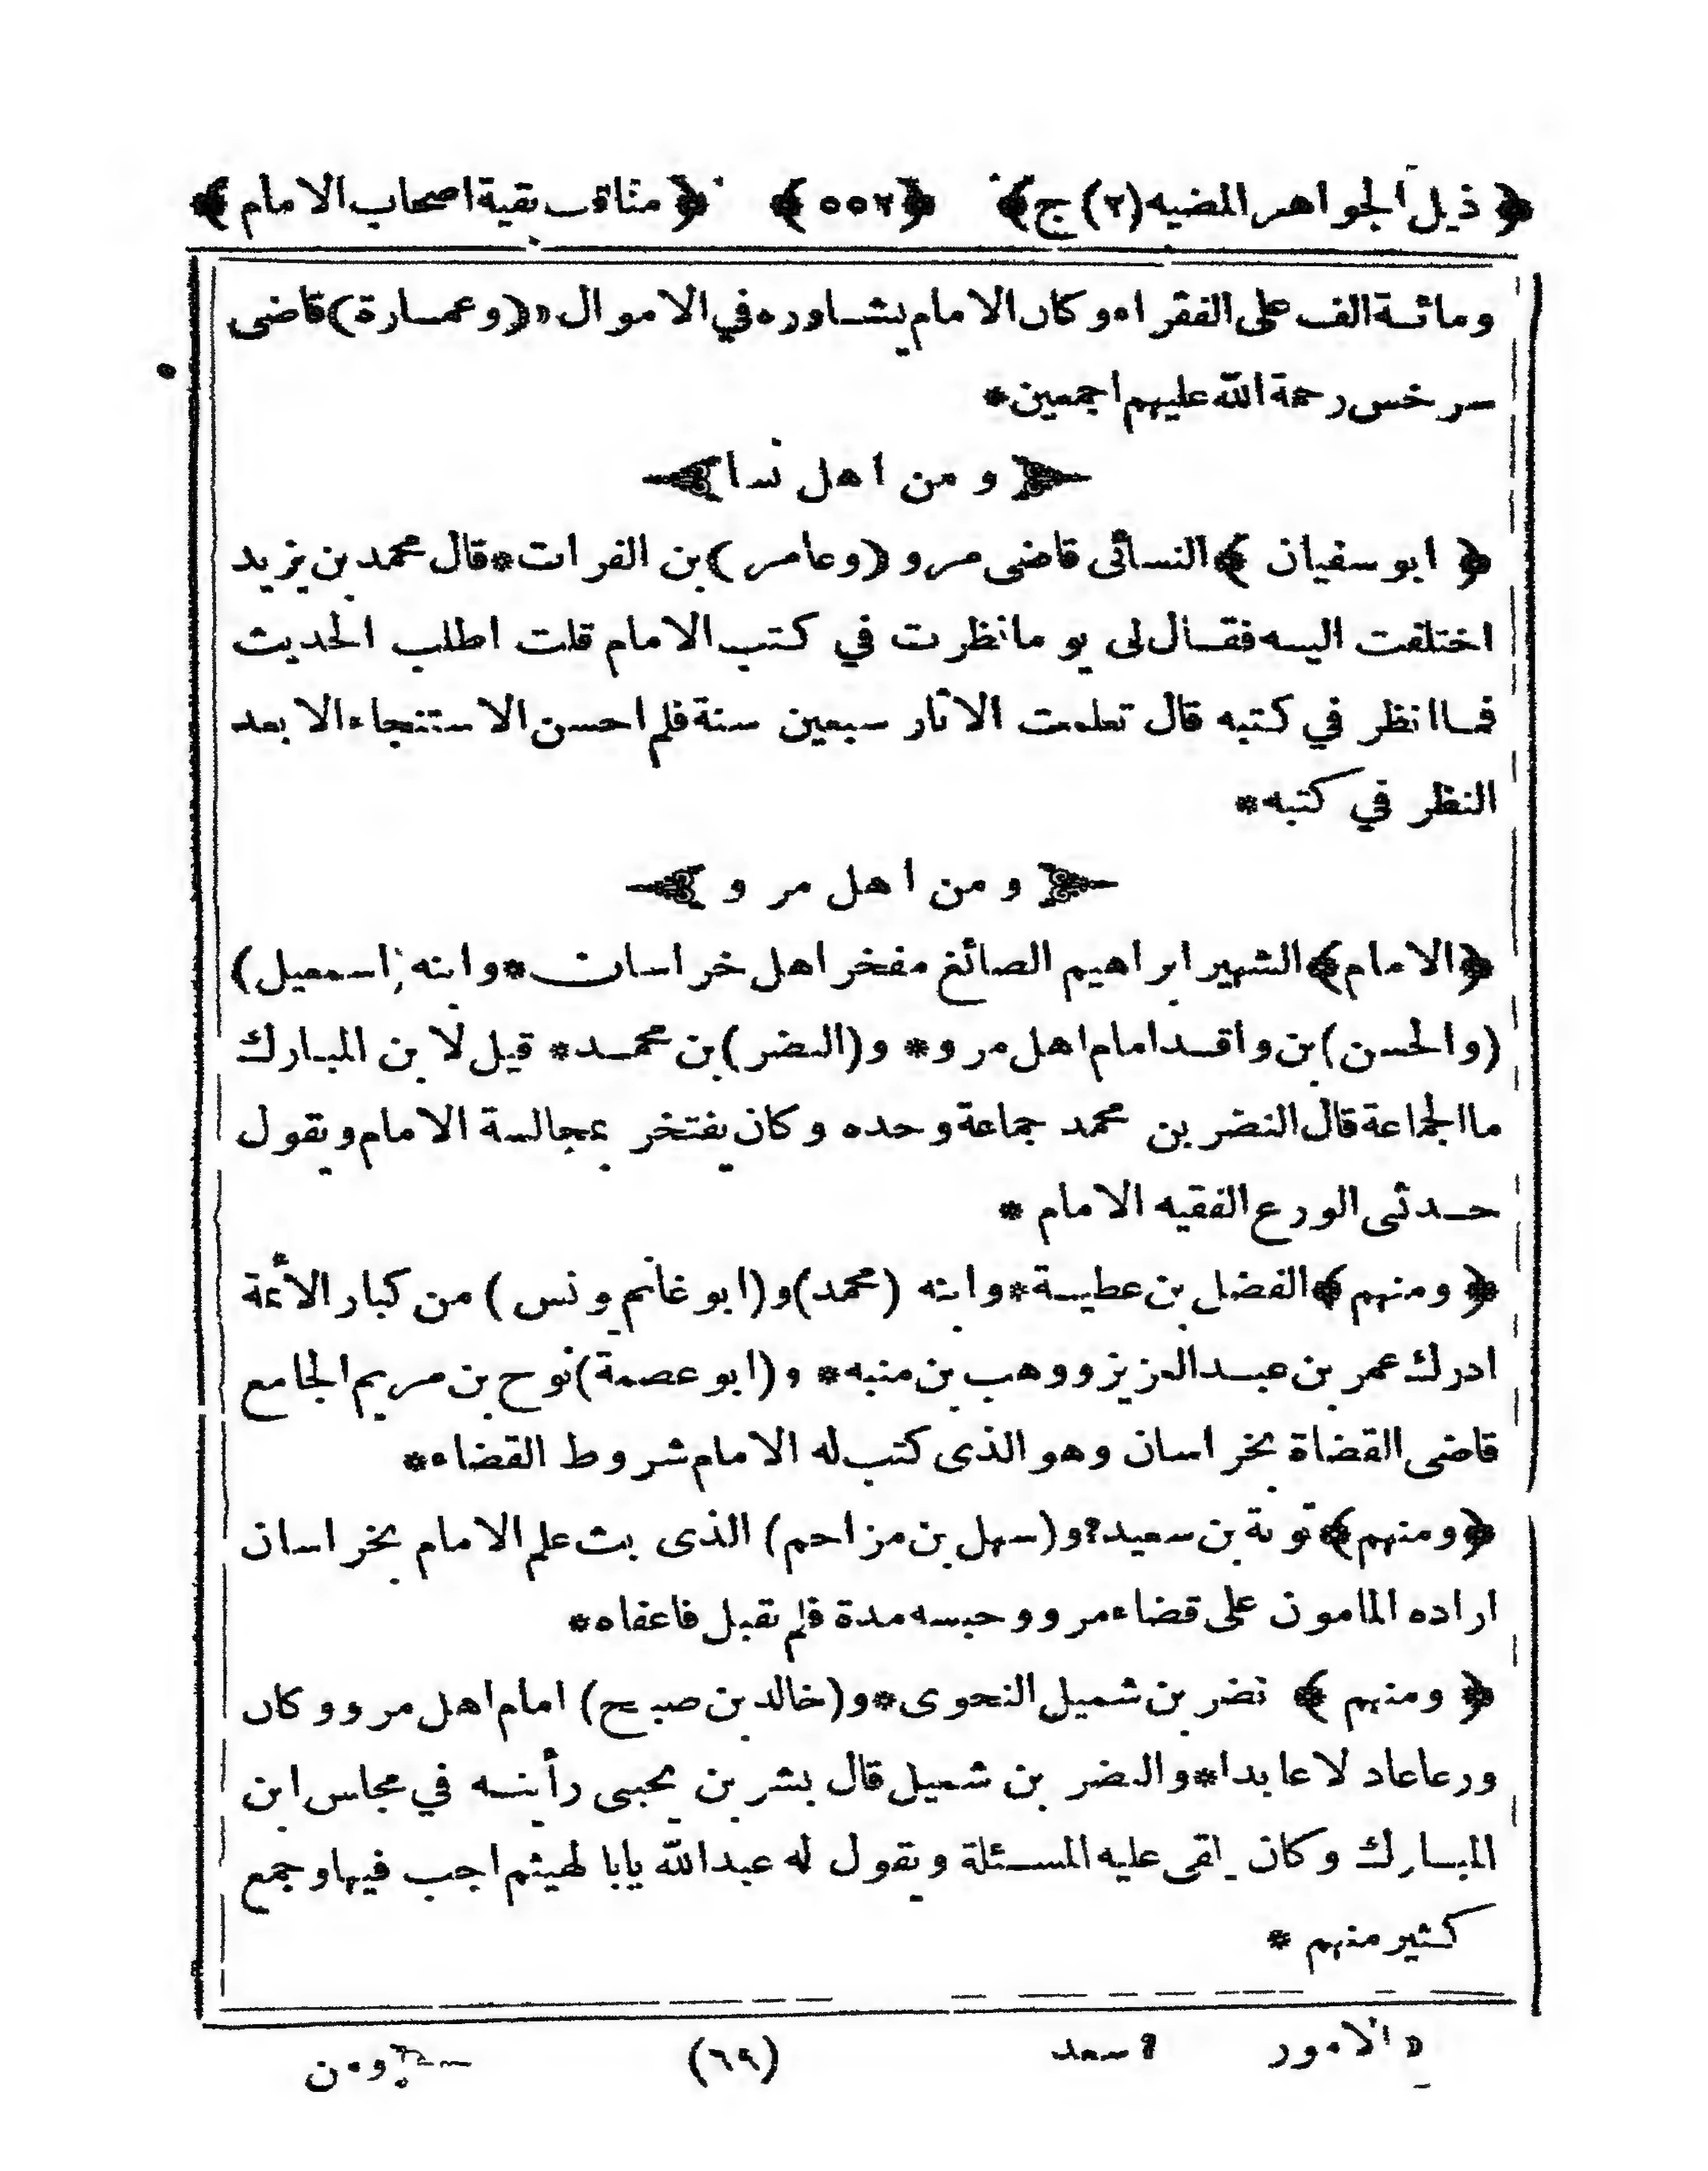 ﴿ ذيل الجواهر المضيه (٢) ج ﴾ ﴿ ٥٥٢ ﴾ ﴿ مناقب بقية اصحاب الامام ﴾
ومائة الف على الفقراء وكان الامام يشاوره في الاموال ﴿(وعمارة) قاضى
سرخس رحمة الله عليهم اجمعين *
﴿ ومن اهل نسا ﴾
﴿ ابو سفيان ﴾ النسائى قاضى مرو (وعامر) بن الفرات * قال محمد بن يزيد
اختلفت اليه فقال لى يو ما نظرت في كتب الامام قلت اطلب الحديث
فما انظر في كتبه قال تعلمت الاثار سبعين سنة فلم احسن الاستنجاء الا بعد
النظر في كتبه *
﴿ ومن اهل مرو ﴾
﴿ الامام ﴾ الشهير ابراهيم الصائغ مفخر اهل خراسان * وابنه (اسمعيل)
(والحسن) بن واقد امام اهل مرو * و (النضر) بن محمد * قيل لابن المبارك
ما الجماعة قال النضر بن محمد جماعة وحده وكان يفتخر بمجالسة الامام ويقول
حدثنى الورع الفقيه الامام *
﴿ ومنهم ﴾ الفضل بن عطية * وابنه (محمد) و (ابو غانم يونس) من كبار الأئمة
ادرك عمر بن عبد العزيز ووهب بن منبه * و (ابو عصمة) نوح بن مريم الجامع
قاضى القضاة بخراسان وهو الذى كتب له الامام شروط القضاء *
﴿ ومنهم ﴾ توبة بن سعيد ٢ و (سهل بن مزاحم) الذى بث علم الامام بخراسان
اراده المامون على قضاء مرو وحبسه مدة فلم يقبل فاعفاه *
﴿ ومنهم ﴾ نضر بن شميل النحوى * و (خالد بن صبيح) امام اهل مرو وكان
ورعا عادلا عابدا * والنضر بن شميل قال بشر بن يحيى رأيته في مجلس ابن
المبارك وكان يلقى عليه المسئلة ويقول له عبد الله يابا لهيثم اجب فيها وجمع
كثير منهم *
الامور ٢ سعد (٦٩) ومن